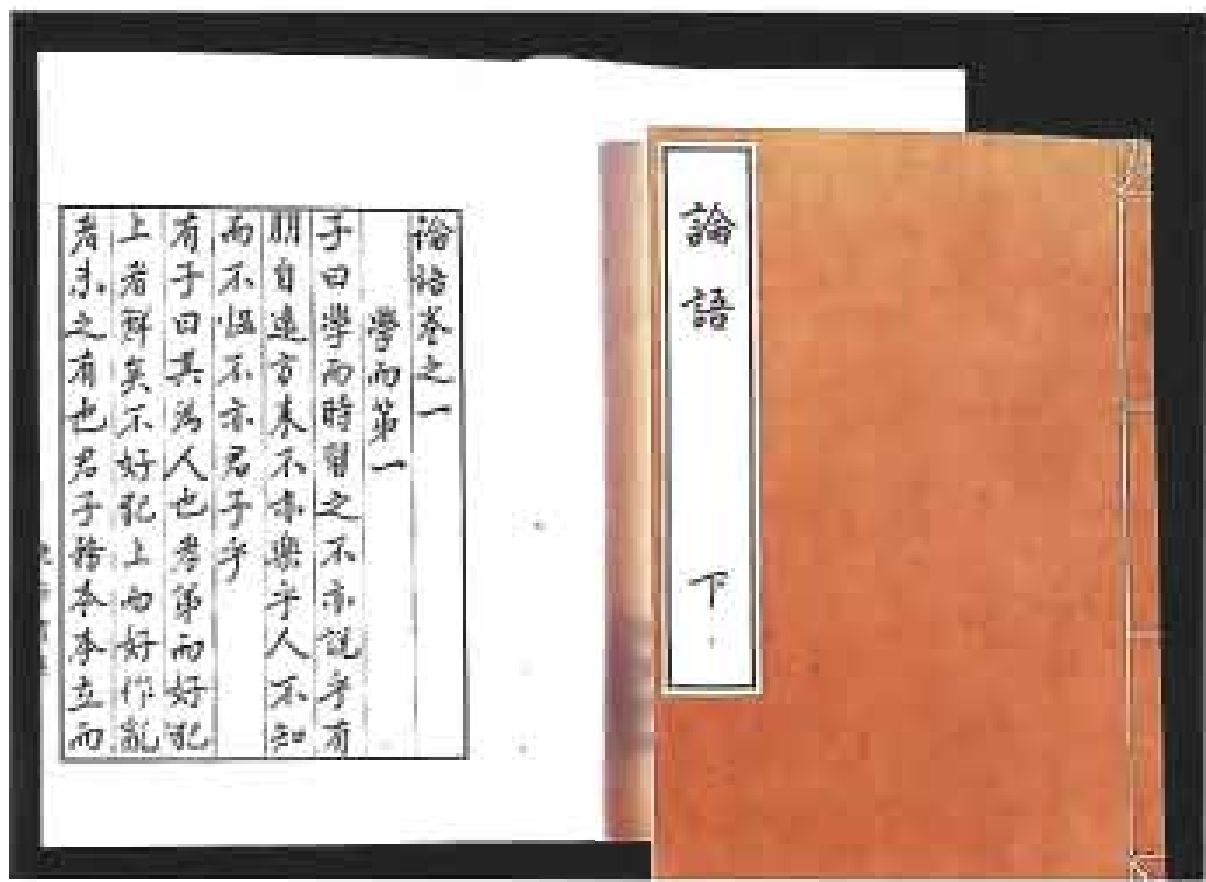 論語卷之一
學而第一
子曰學而時習之不亦説乎有
朋自遠方来不亦樂乎人不知
而不慍不亦君子乎
有子曰其為人也孝弟而好犯
上者鮮矣不好犯上而好作亂
者未之有也君子務本本立而
論語
下